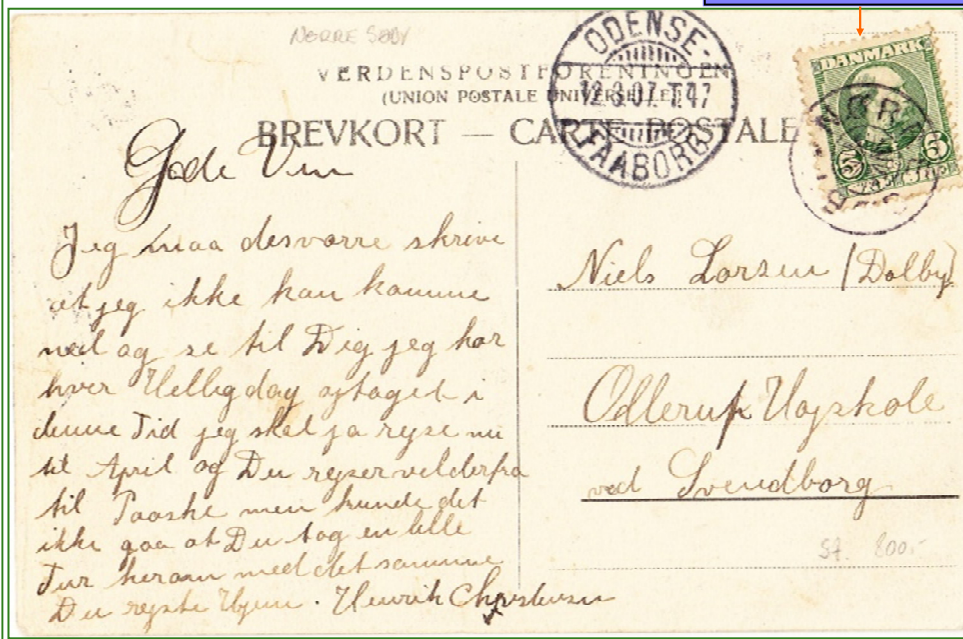 NØRRE SØBY
VERDENSPOSTFORENINGEN
(UNION POSTALE UNIVERSELLE)
BREVKORT — CARTE POSTALE
ODENSE-
12.3.07. T.47
FAABORG
DANMARK
5 5
Gode Ven
Jeg maa desværre skrive
at jeg ikke kan komme
ned og se til Dig jeg har
hver Helligdag optaget i
denne Tid jeg skal jo rejse nu
til April og Du rejser vel derfra
til Paaske men kunde det
ikke gaa at Du tog en lille
Tur herom med det samme
Du rejste Hjem. Henrik Christensen
Niels Larsen (Dalby)
Ollerup Højskole
ved Svendborg
57. 800.-